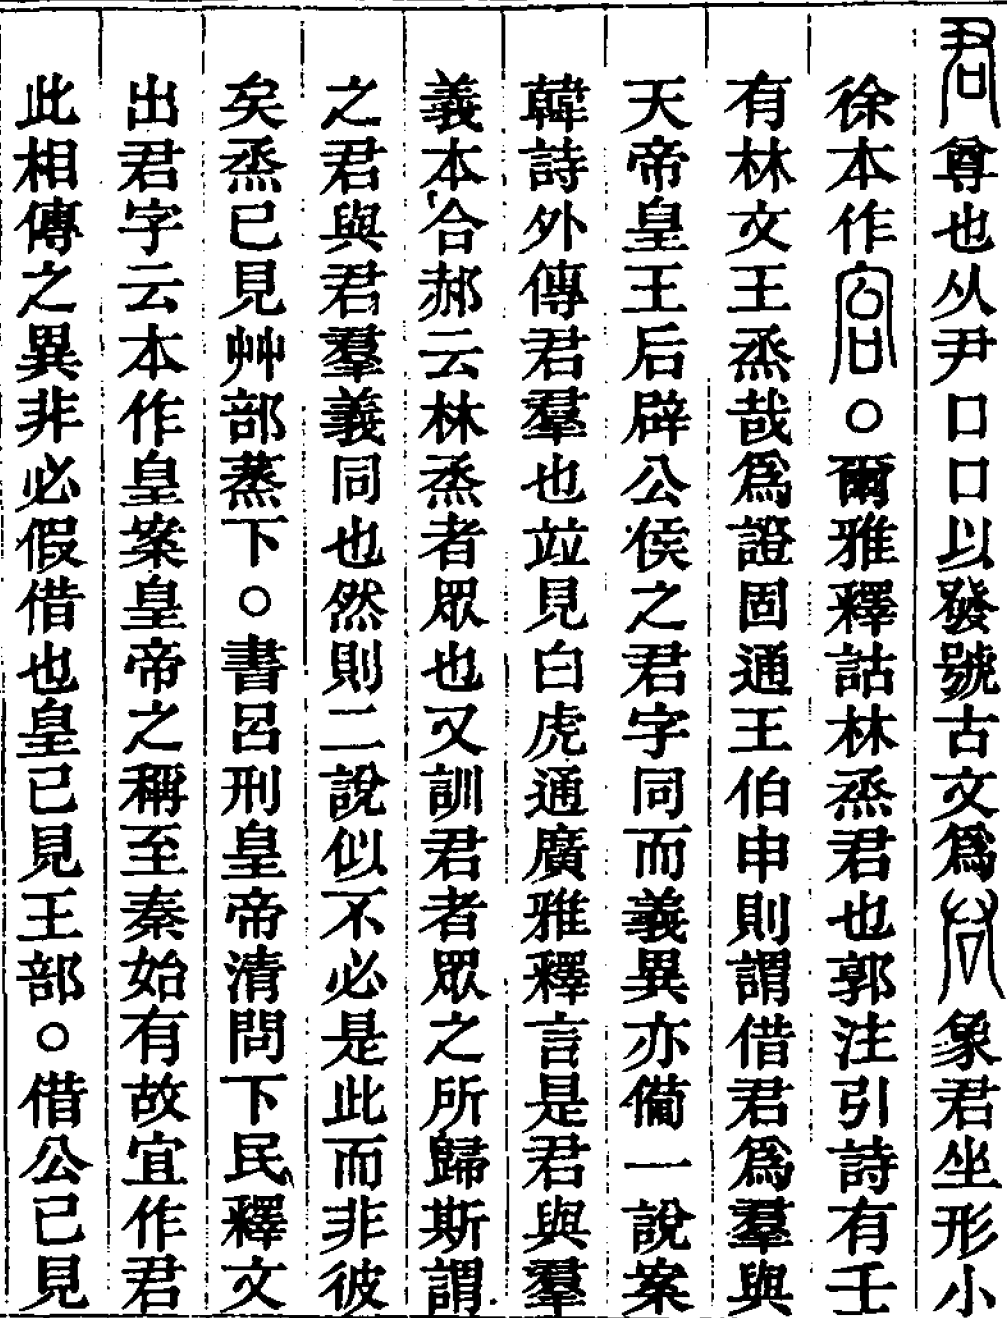 君尊也从尹口口以發號古文爲𠺞象君坐形小
徐本作㝐○爾雅釋詁林烝君也郭注引詩有壬
有林文王烝哉爲證固通王伯申則謂借君爲羣與
天帝皇王后辟公侯之君字同而義異亦僃一說案
韓詩外傳君羣也竝見白虎通廣雅釋言是君與羣
義本合郝云林烝者眾也又訓君者眾之所歸斯謂
之君與君羣義同也然則二說似不必是此而非彼
矣烝已見艸部蒸下○書呂刑皇帝清問下民釋文
出君字云本作皇案皇帝之稱至秦始有故宜作君
此相傳之異非必假借也皇已見王部○借公已見